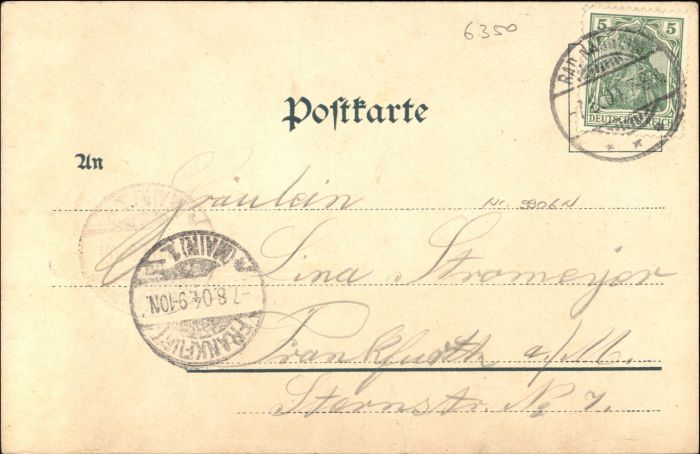 6350
5 5
DEUTSCHES REICH
BAD NAUHEIM
Postkarte
An
Fräulein
Nr. 9906N
Lina Stromeyer
Frankfurth a/M.
Sternstr. No 7.
FRANKFURT (MAIN) 1.
-7.8.04. 9-10N.